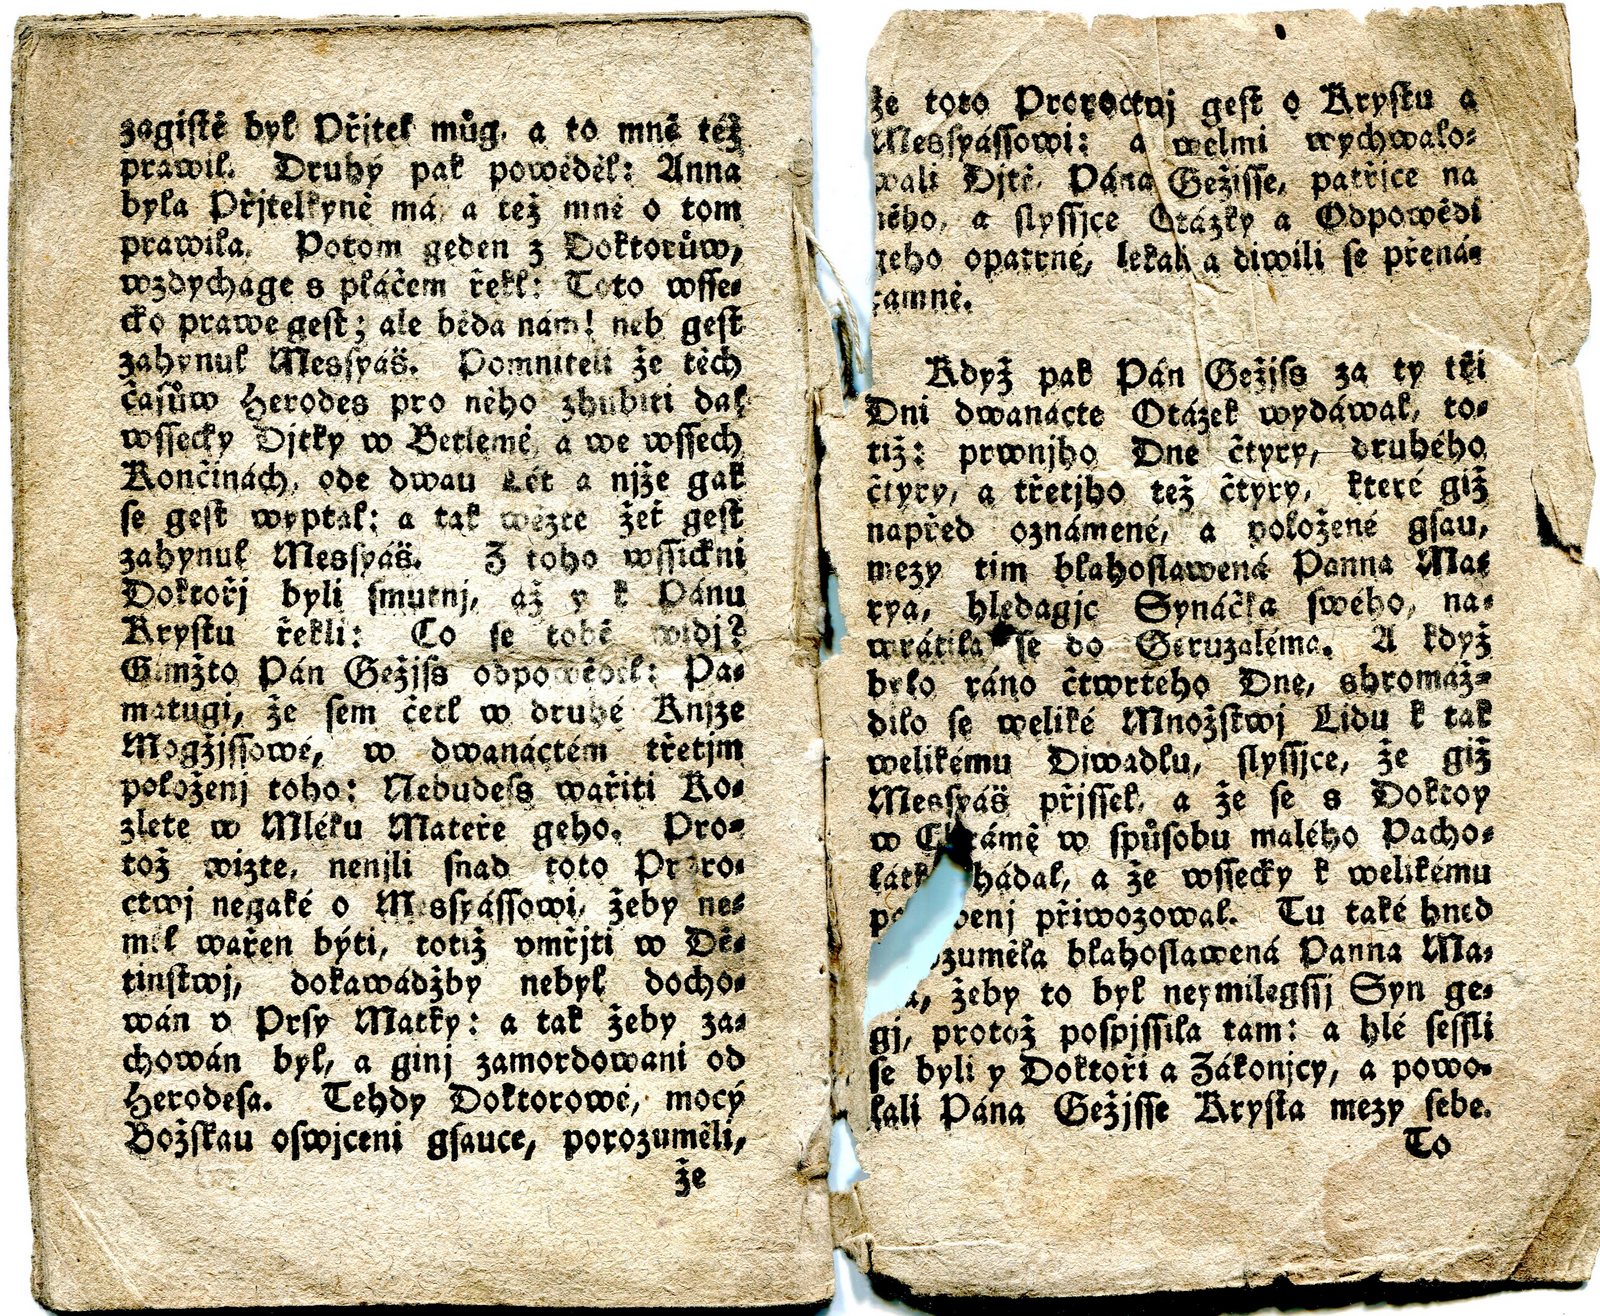 zagiſtě byl Přjtel můg, a to mně též
prawil. Druhý pak powěděl: Anna
byla Přjtelkyně má, a též mně o tom
prawila. Potom geden z Doktorůw,
wzdychage s pláčem řekl: Toto wſſe-
cko prawe geſt; ale běda nám! neb geſt
zahynul Mesſyáš. Pomniteli že těch
čaſůw Herodes pro něho zhubiti dal
wſſecky Djtky w Betlemě, a we wſſech
Končinách, ode dwau Lét a njže gak
se geſt wyptal; a tak wězte žeť geſt
zahynul Mesſyáš. Z toho wſſickni
Doktořj byli ſmutnj, až y k Pánu
Kryſtu řekli: Co se tobě widj?
Gimžto Pán Gežjſs odpowěděl: Pa-
matugi, že ſem četl w druhé Knjze
Mogžjſſowě, w dwanáctém třetjm
položenj toho: Nebudeſs wařiti Ko-
zlete w Mléku Mateře geho. Pro-
tož wizte, nenjli ſnad toto Proro-
ctwj negaké o Mesſyáſſowi, žeby ne-
měl wařen býti, totiž vmřjti w Dě-
tinſtwj, dokawádžby nebyl docho-
wán v Prſy Matky: a tak žeby za-
chowán byl, a ginj zamordowani od
Herodeſa. Tehdy Doktorowé, mocý
Božſkau oſwjceni gſauce, porozuměli,
že
že toto Proroctwj geſt o Kryſtu a
Mesſyáſſowi: a welmi wychwalo-
wali Djtě, Pána Gežiſſe, patřjce na
něho, a ſlyſſjce Otázky a Odpowědi
geho opatrné, lekali a diwili ſe přená-
ramně.
Když pak Pán Gežjſs za ty tři
Dni dwanácte Otázek wydáwal, to-
tiž: prwnjho Dne čtyry, druhého
čtyry, a třetjho též čtyry, které giž
napřed oznámené, a položené gſau,
mezy tim blahoſlawená Panna Ma-
rya, hledagjc Synáčka ſwého, na-
wrátila ſe do Geruzaléma. A když
bylo ráno čtwrtého Dne, shromáž-
dilo ſe weliké Množſtwj Lidu k tak
welikému Diwadlu, ſlyſſjce, že giž
Mesſyáš přjſſel, a že ſe s Doktoy
w Chrámě w ſpůſobu malého Pacho-
látk hádal, a že wſſecky k welikému
přiwozowal. Tu také hned
zuměla blahoſlawená Panna Ma-
žeby to byl neymilegſſj Syn ge-
gj, protož poſpjſſila tam: a hlé ſeſſli
ſe byli y Doktoři a Zákonjcy, a powo-
lali Pána Gežjſſe Kryſta mezy ſebe.
To